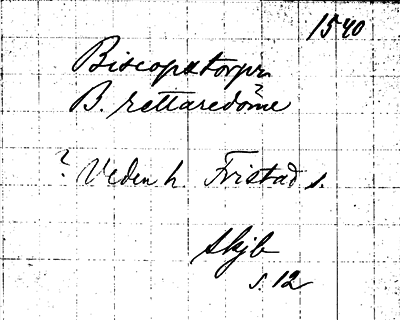 1540
Biscopstorpn
B. rettaredöme
? Veden h. Fristad s.
skjb
s. 12